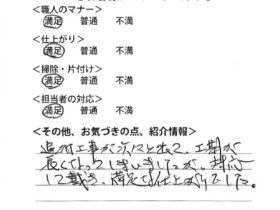 <職人のマナー>
満足 普通 不満
<仕上がり>
満足 普通 不満
<掃除・片付け>
満足 普通 不満
<担当者の対応>
満足 普通 不満
<その他、お気づきの点、紹介情報>
追加工事が次々と出て、工期が
長くなってしまいましたが、対応
して頂き、満足な仕上がりでした。